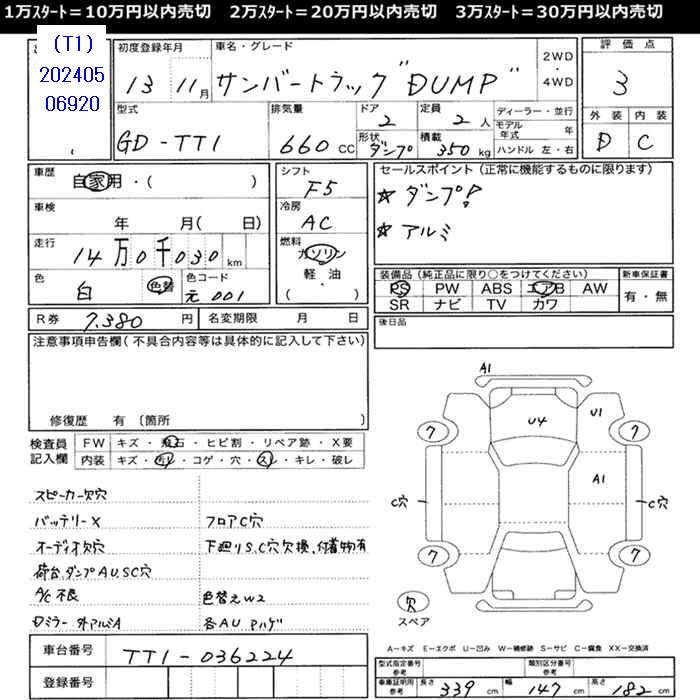 1万ｽﾀｰﾄ＝10万円以内売切　2万ｽﾀｰﾄ＝20万円以内売切　3万ｽﾀｰﾄ＝30万円以内売切
(T1)
202405
06920
初度登録年月
13 11月
車名・グレード
サンバートラック "DUMP"
2WD
・
4WD
評価点
3
外装 内装
D C
型式
GD-TT1
排気量
660 CC
ドア
2
定員
2 人
形状
ダンプ
積載
350 kg
ディーラー・並行
モデル年式 年
ハンドル 左・右
車歴
自家用・( )
車検
年 月( 日)
走行
14万0千030 km
色
白 色替
色コード
元001
シフト
F5
冷房
AC
燃料
ガソリン
軽・油
( ・ )
セールスポイント（正常に機能するものに限ります）
☆ ダンプ!
☆ アルミ
装備品（純正品に限り○をつけてください）
PS PW ABS エアB AW
SR ナビ TV カワ
新車保証書
有・無
R券 7,380 円
名変期限 月 日
後日品
注意事項申告欄（不具合内容等は具体的に記入して下さい）
修復歴 有〔箇所 〕
検査員
記入欄
FW キズ・飛石・ヒビ割・リペア跡・X要
内装 キズ・ヨゴレ・コゲ・穴・スレ・キレ・破レ
スピーカー欠穴
バッテリーX
オーディオ欠穴
荷台,ダンプAU,SC穴
A/C不良
Dミラー外アルミA
フロアC穴
下廻りS,C穴欠換,付着物有
色替えW2
各AU Pハゲ
A1
U4
U1
7
7
A1
C穴
C穴
7
7
欠
スペア
A－キズ E－エクボ U－凹み W－補修跡 S－サビ C－腐食 XX－交換済
車台番号
TT1-036224
登録番号
型式指定番号
参考
類別区分番号
参考
車庫証明用
参考
長さ 339 cm 幅 147 cm 高さ 182 cm